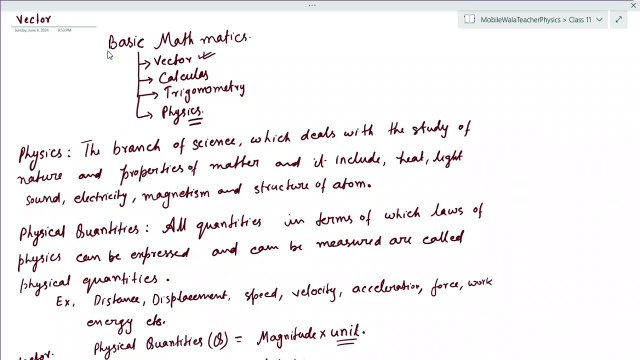 Vector
Sunday, June 9, 2024 9:53 PM
MobileWalaTeacherPhysics > Class 11
Basic Math matics.
Vector
Calculas
Trigonometry
Physics.
Physics : The branch of science, which deals with the study of
nature and properties of matter and it include, heat, light
sound, electricity, magnetism and structure of atom.
Physical Quantities : All quantities in terms of which laws of
physics can be expressed and can be measured are called
physical quantities.
Ex. Distance, Displacement, speed, velocity, acceleration, force, work
energy etc.
Physical Quantities (Q) = Magnitude × unit.